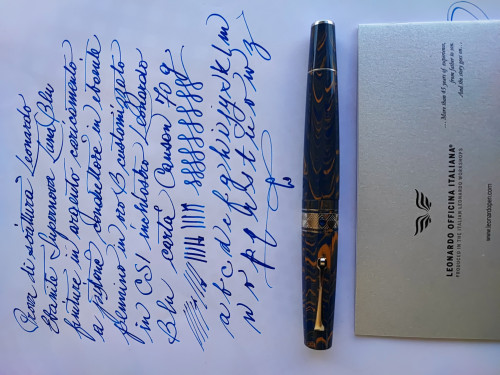 Prova di scrittura Leonardo
Ebanite Supernova Luna Blu
finiture in argento caricamento
a pistone conduttore in ebanite
pennino in oro B customizzato
in CSI inchiostro Leonardo
Blu carta Canson 70 g
a b c d e f g h i j k l m
n o p q r s t u v w z
... More than 45 years of experience,
from father to son.
And the story goes on...
LEONARDO OFFICINA ITALIANA®
PRODUCED IN THE ITALIAN LEONARDO WORKSHOPS
www.leonardopen.com